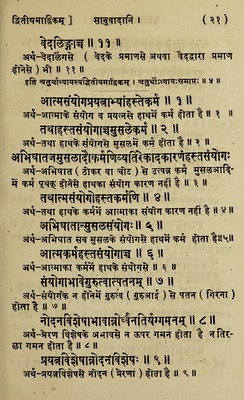 द्वितीयमाह्निकम् ] सानुवादानि । (२१)
वेदलिङ्गाच्च ॥ ११ ॥
अर्थ-वेदलिंगसे ( वेदके प्रमाणसे अथवा वेदद्वारा प्रमाण
होनेसे ) भी ॥ ११ ॥
इति चतुर्थाध्यायस्यद्वितीयमाह्निकम् । चतुर्थोऽध्यायःसमाप्तः ॥ ४ ॥
आत्मसंयोगप्रयत्नाभ्यांहस्तेकर्म ॥ १ ॥
अर्थ-आत्माके संयोग व प्रयत्नसे हाथमें कर्म होता है ॥ १ ॥
तथाहस्तसंयोगाच्चमुसलेकर्म ॥ २ ॥
अर्थ-तथा हाथके संयोगसे मुसलमें कर्म होता है ॥ २ ॥
अभिघातजेमुसलादौकर्मणिव्यतिरेकादकारणंहस्तसंयोगः
अर्थ-अभिघात ( ठोकर वा चोट ) से उत्पन्न कर्म मुसलआदि-
में कर्म पृथक् होनेसे हाथका संयोग कारण नहीं है ॥ ३ ॥
तथात्मसंयोगोहस्तकर्मणि ॥ ४ ॥
अर्थ-तथा हाथके कर्ममें आत्माका संयोग कारण नहीं है ॥ ४ ॥
अभिघातान्मुसलसंयोगाद्धस्तेकर्म ॥ ५ ॥
अर्थ-अभिघात सब मुसलके संयोगसे हाथमें कर्म होता है॥५॥
आत्मकर्महस्तसंयोगाच्च ॥ ६ ॥
अर्थ-आत्माका कर्ममें हाथके संयोगसे ॥ ६ ॥
संयोगाभावेगुरुत्वात्पतनम् ॥ ७ ॥
अर्थ-संयोगके न होनेमें गुरुत्व ( गुरुआई ) से पतन ( गिरना )
होता है ॥ ७ ॥
नोदनविशेषाभावान्नोर्ध्वंनतिर्यग्गमनम् ॥ ८ ॥
अर्थ-प्रेरण विशेषके अभावसे न ऊपर गमन होता है न तिर-
छा गमन होता है ॥ ८ ॥
प्रयत्नविशेषान्नोदनविशेषः ॥ ९ ॥
अर्थ-प्रयत्नविशेषसे नोदन ( प्रेरणा ) होता है ॥ ९ ॥